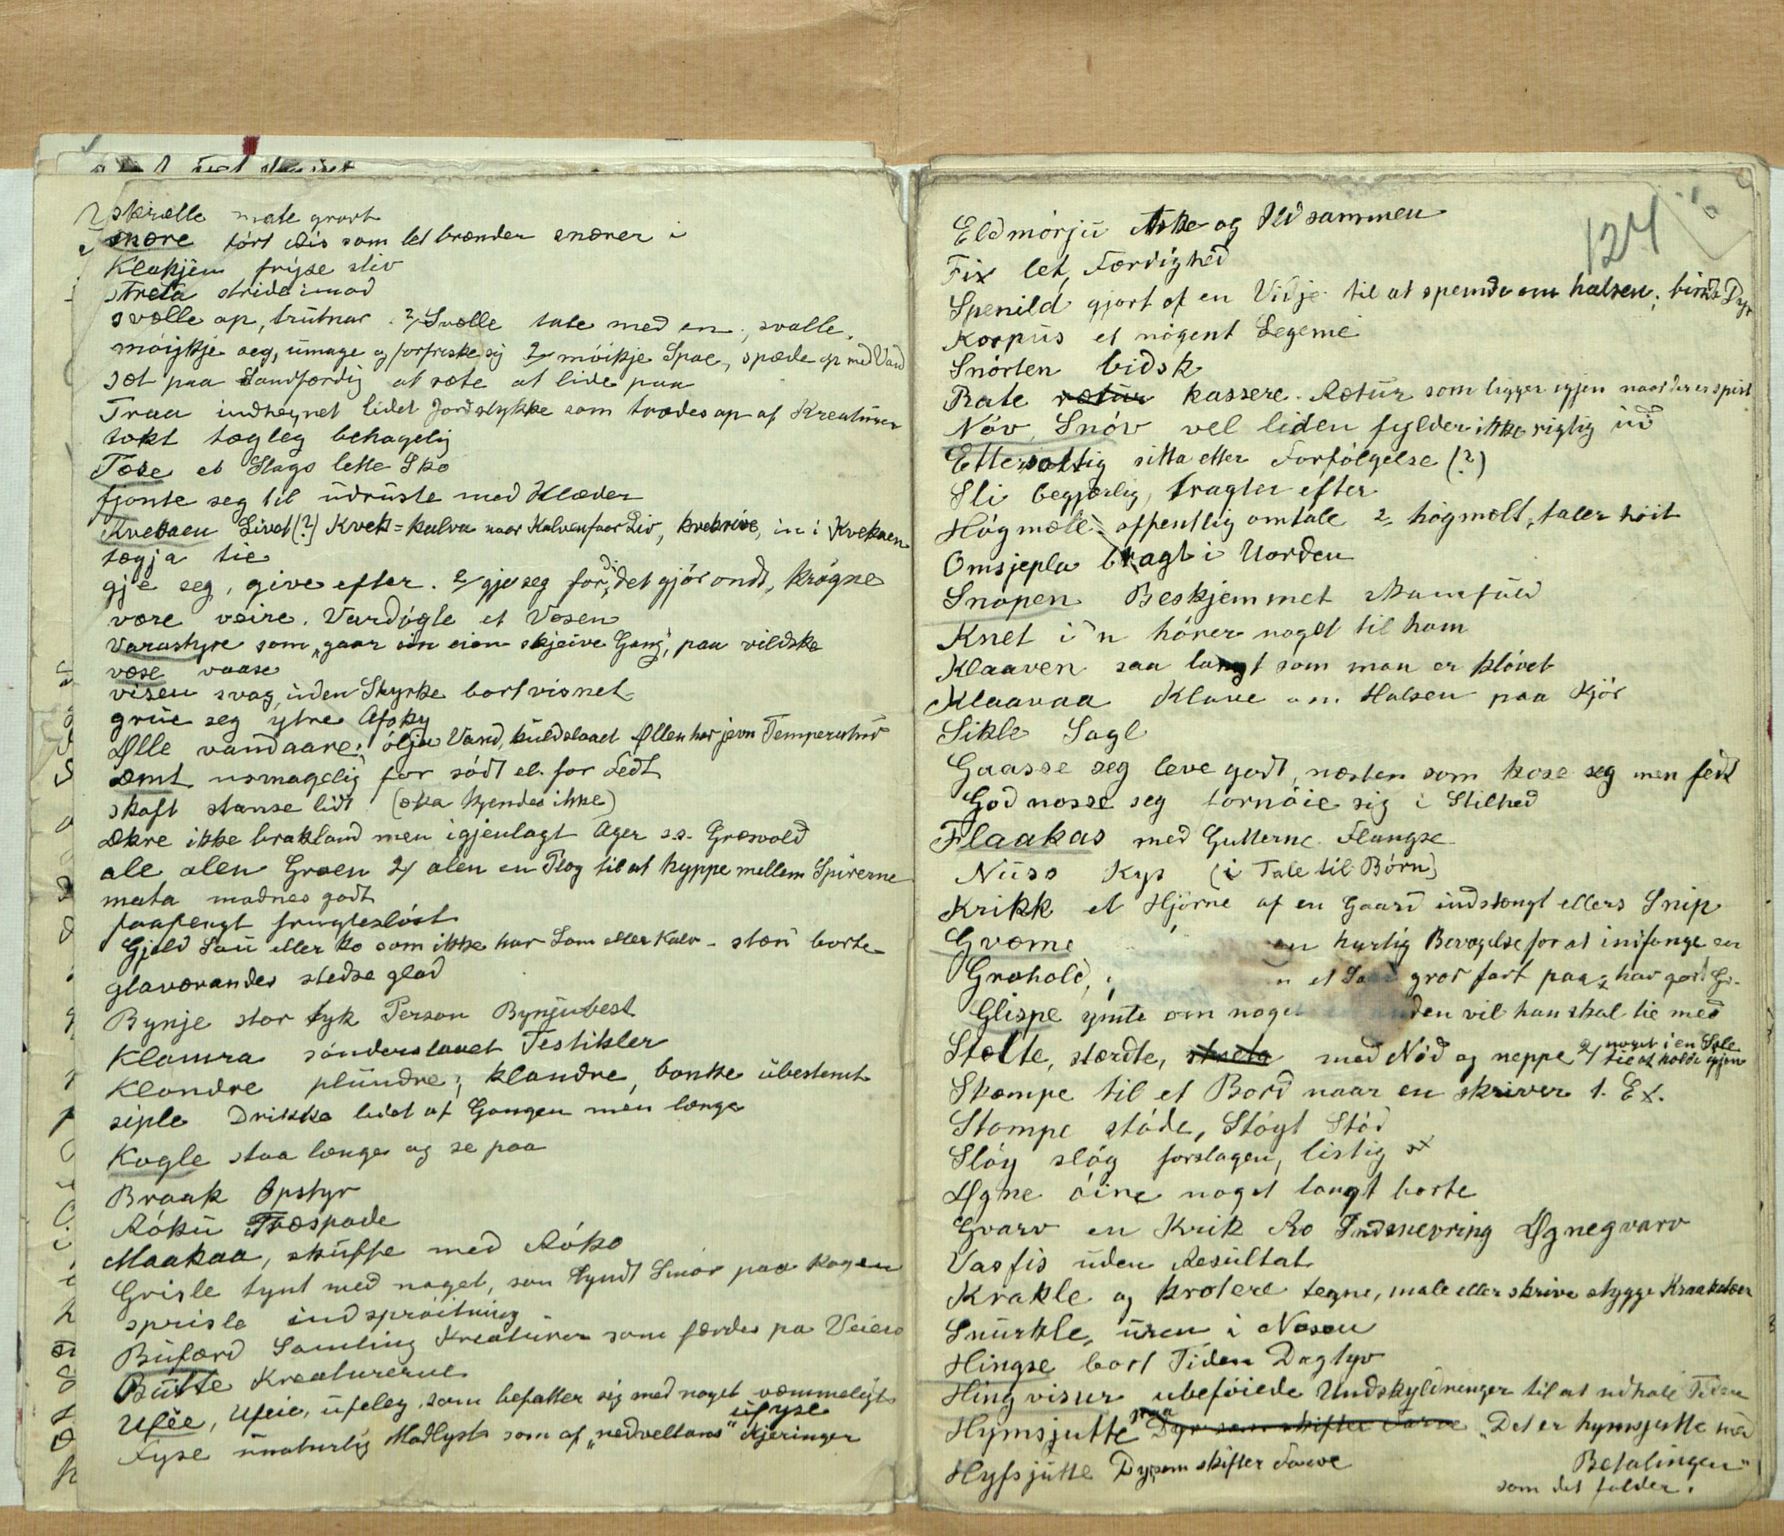 skrælle mate grort
snære tört Ris som let brænder snærer i
Klakjen fryse stiv
streta stride imod
svælle op, trutnar. 2/ Svælle tale med en, svalle
möykje seg, umage og forfriske sig 2/ möikje Spae, spæde op med Vand
sæt paa Handfærdig at sæte at lide paa
Traa indhegnet lidet Jordstykke som trædes op af Kreaturer
tækt tægleg behagelig
Tæse et Slags lette Sko
fjonte seg til udruste med Klæder
Kvekaen Livet (?) Kvek = kalva naar Kalven faar Liv, kvekrive, in i Kvekaen
tægja tie
gje seg, give efter. 2/ gje seg fordi det gjör ondt, krögne
være veire. Vardögle et Væsen
Varastyre som "gaar sin eien skjeive Gang", paa vildske
væse vaase
visen svag, uden Styrke bortvisnet
grue seg ytre Afsky
Ølle vandaare; ölja Vand, kuldslaaet Øllen har jevn Temperatur
æmt usmagelig for södt el. for fedt
skaft stanse lidt (æka kjendes ikke)
Ækre ikke brakland men igjenlagt Ager s.s. Græsvold
ale alen Groen 2/ alen en Plog til at hyppe mellem Spirerne
mata madnes godt
faafengt frugtesløst
Gjeld Sau eller ko som ikke har Lam eller Kalv - stæri borte
glaværandes stedse glad
Bynje stor tyk Person Bynjubest
Klamra sönderslaaet Testikler
Klandre plündre; klandre, banke ubestemt
siple Drikke lidet af Gangen men længe
Kogle staa længe og se paa
Braak Opstyr
Róku Træspade
Maakaa, skuffe med Róko
Grisle tynt med noget, som tyndt Smör paa Kagen
sprisle indspröitning
Bufærd Samling Kreaturer som færdes pa Veien
Butte Kreaturerne
Ufse, Ufeie, ufeleg, som befatter sig med noget væmmeligt
ufyse
Fyse unaturlig Madlyst som af "nedveltans" Kjeringer
124
Eldmörju Aske og Ild sammen
Fix let, Færdighed
Spenild gjort af en Vidje til at spende om halsen; binde Dyr
Korpus et nögent Legeme
Snörten bidsk
Rate rætur kassere. Rætur som ligger igjen naar der er spist
Növ, Snöv vel liden fylder ikke rigtig ud
Ettersottig sitta etter Forfölgelse (?)
Sli begjærlig, tragter efter
Högmæle offentlig omtale 2, högmælt, taler höit
Omsjepla bragt i Uorden
Snopen Beskjemmet skamfuld
Knet i'n hörer noget til ham
Klaaven saa langt som man er klövet
Klaavaa Klave om Halsen paa Kjör
Sikle Sagl
Gaasse seg leve godt, næsten som kose seg men fedt
Godnosse seg fornöie sig i Stilhed
Flaakas med Gutterne Flangse
Nuss Kys (i Tale til Börn)
Krikk et Hjörne af en Gaard indstængt ellers Snip
Gvæme en hurtig Bevægelse for at indfange en
Grohold, n et Saar gror fort paa; har godt Gr-
Glispe ymte om noget anden vil han skal tie med
Stælte, stærdte, streta med Nöd og neppe 2/ noget i en Sæle til at holde igjen
Skæmpe til et Bord naar en skriver t. Ex.
Stampe stöde, Stöyt Stöd
Slöy slög forslagen, listig
Øgne öine noget langt borte
Gvarv en Krik Ro Indsnevring Øgnegvarv
Vasfis uden Resultat
Krakle og krotere tegne, male eller skrive stygge Kraaketæer
Snurkle, uren i Næsen
Hingse bort Tiden Dagtyv
Hingvisur ubeföiede Undskyldninger til at udhale Tiden
Hymsjutte Dyr som skifter Farve "Det er hymsjutte med
Hyfsjutte Dyr som skifter Farve Betalingen"
som det falder.